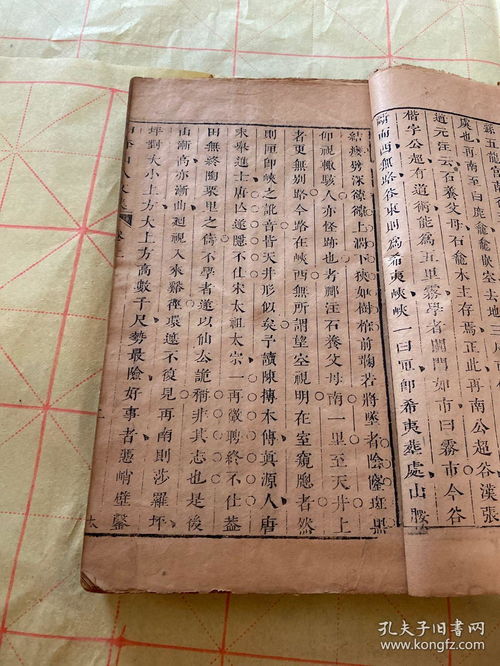 五龍宮
處也再南至白鹿龕龕室去地
道元注云石養父母石龕木主存焉正此再南公超谷漢張
楷字公超有道術能爲五里霧學者闐門如市曰霧市今谷
斷而西無路谷東則爲希夷峽峽一曰匣卽希夷葬處山腰
結癭劈深上闊下狹如樹棺前若將墜者陰壁斑黑
仰視輒駭人亦怪跡也者酈注石養父母南一里至天井上
者更無別路今路在峽西無所謂望空視明在室窺牕者然
則匣卽峽之訛音皆天井形似矣予讀陳摶本傳眞源人唐
末舉進士唐亾遂隱不仕宋太祖太宗一再徵聘終不仕蓋
田無終陶栗里之儔不學者遂以仙公詭稱非其志也是後
山漸高亦漸曲迴視入來谿徑環遶不復見再南則莎羅坪
坪對大小上方大上方高數千尺勢最險好事者憑峭壁鑿
孔夫子旧书网
kongfz.com